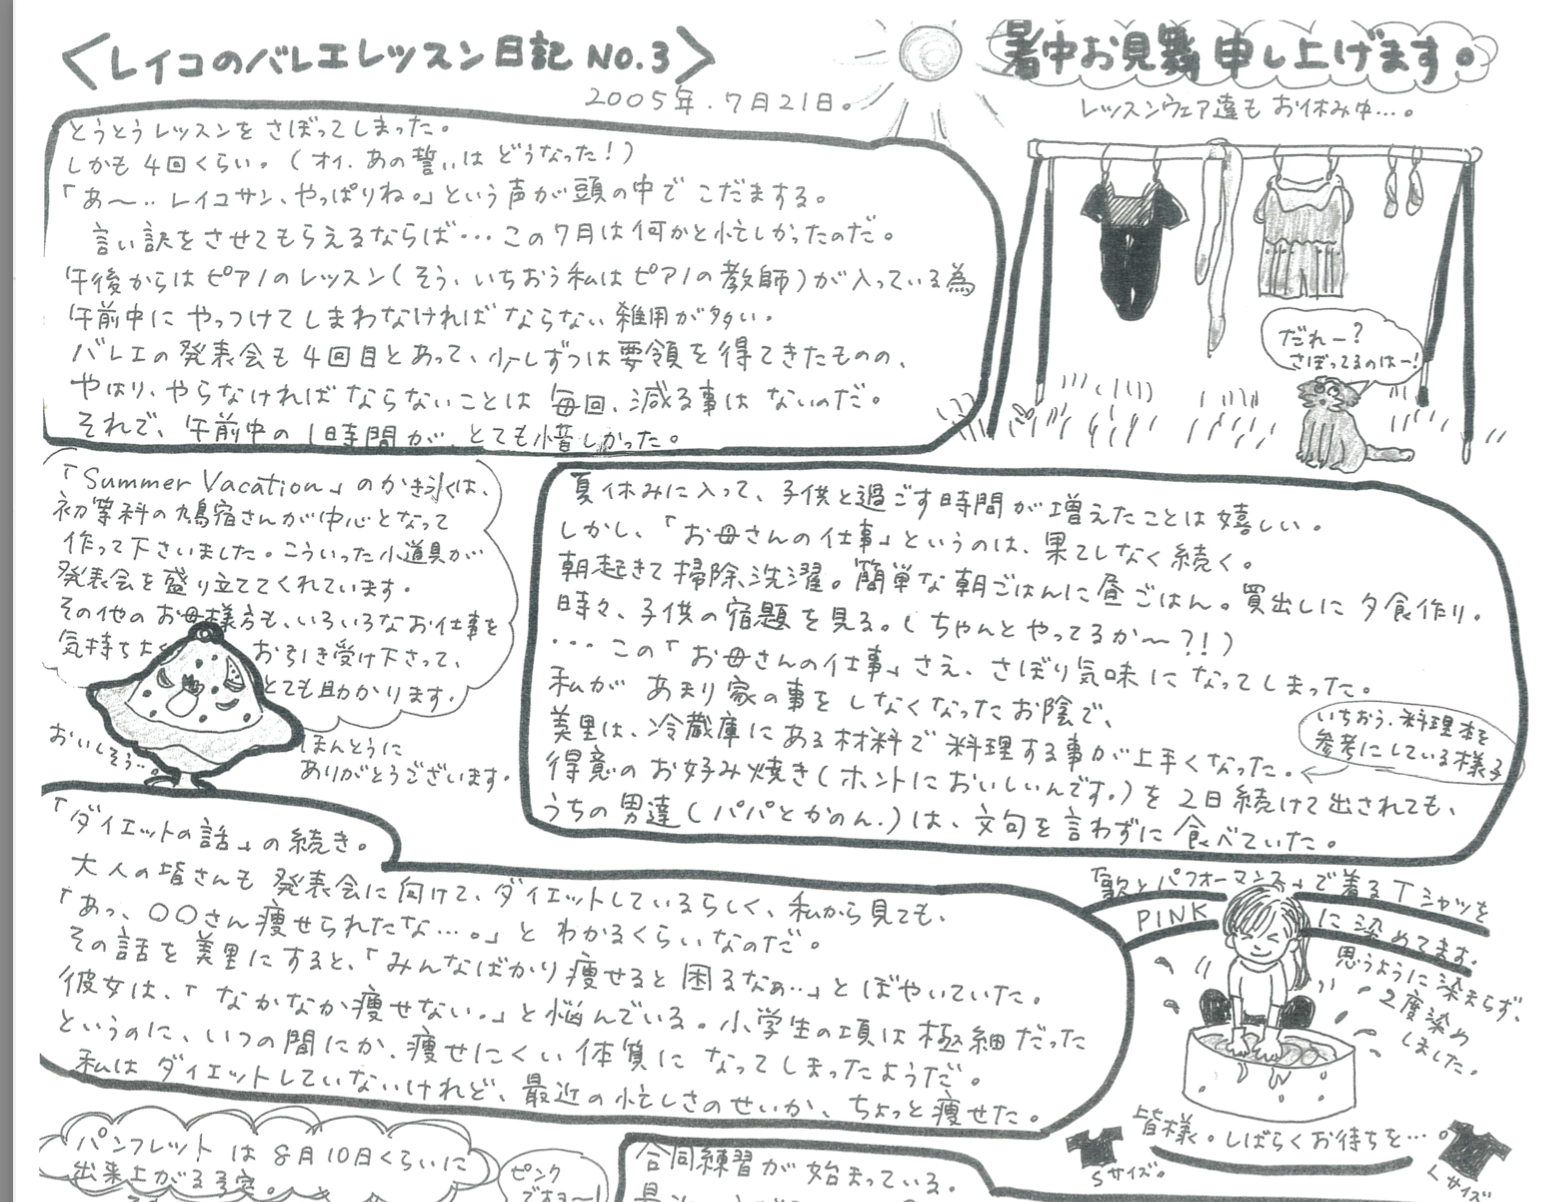 〈レイコのバレエレッスン日記 NO.3〉
2005年.7月21日。
暑中お見舞申し上げます。
レッスンウェア達も お休み中…。
とうとうレッスンを さぼってしまった。
しかも 4回くらい。(オイ. あの誓いは どうなった!)
「あ〜‥ レイコサン、やっぱりね。」という声が頭の中で こだまする。
言い訳をさせてもらえるならば… この7月は何かと忙しかったのだ。
午後からは ピアノのレッスン(そう、いちおう私はピアノの教師)が入っている為
午前中に やっつけてしまわなければならない 雑用が多い。
バレエの発表会も 4回目とあって、少しずつは要領を得てきたものの、
やはり、やらなければならないことは 毎回、減る事は ないのだ。
それで、午前中の 1時間が、とても惜しかった。
だれー?
さぼってるのはー!
「Summer Vacation」のかき氷は、
初等科の鳩宿さんが中心となって
作って下さいました。こういった小道具が
発表会を盛り立ててくれています。
その他のお母様方も、いろいろなお仕事を
気持ち お引き受け下さって、
とても助かります。
ほんとうに
ありがとうございます。
おいしそう…
夏休みに入って、子供と過ごす時間が増えたことは嬉しい。
しかし、「お母さんの仕事」というのは、果てしなく続く。
朝起きて掃除洗濯。簡単な朝ごはんに昼ごはん。買出しに夕食作り。
時々、子供の宿題を見る。(ちゃんとやってるか〜?!)
… この「お母さんの仕事」さえ、さぼり気味になってしまった。
私が あまり家の事をしなくなったお陰で、
美里は、冷蔵庫にある材料で料理する事が上手くなった。
いちおう.料理本を
参考にしている様子
得意のお好み焼き(ホントにおいしいんです。)を 2日続けて出されても、
うちの男達(パパとかのん.)は、文句を言わずに食べていた。
「ダイエットの話」の続き。
大人の皆さんも発表会に向けて、ダイエットしているらしく、私から見ても、
「あっ、〇〇さん痩せられたな…。」と わかるくらいなのだ。
その話を美里にすると、「みんなばかり痩せると困るなぁ‥」とぼやいていた。
彼女は、「なかなか痩せない。」と悩んでいる。小学生の頃は極細だった
というのに、いつの間にか、痩せにくい体質になってしまったようだ。
私は ダイエットしていないけれど、最近の忙しさのせいか、ちょっと痩せた。
「歌とパフォーマンス」で着るTシャツを
PINK に染めてます。
思うように染まらず、
2度染め
しました。
皆様。しばらくお待ちを…。
Sサイズ。
Lサイズ
パンフレット は 8月10日くらいに
出来上がる予定。
ピンク
ですよ〜!
合同練習が 始まっている。